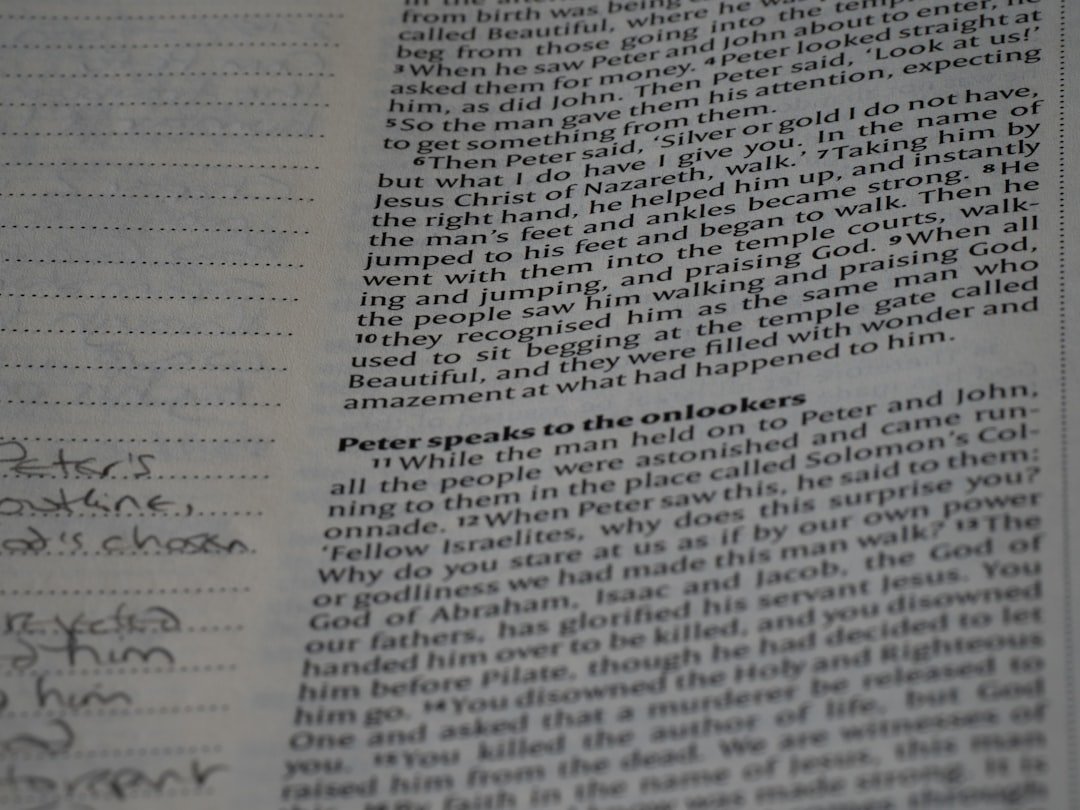 from birth was being
called Beautiful, where he was
beg from those going into the temple
³When he saw Peter and John about to enter, he
asked them for money. ⁴Peter looked straight at
him, as did John. Then Peter said, ‘Look at us!’
⁵So the man gave them his attention, expecting
to get something from them.
⁶Then Peter said, ‘Silver or gold I do not have,
but what I do have I give you. In the name of
Jesus Christ of Nazareth, walk.’ ⁷Taking him by
the right hand, he helped him up, and instantly
the man’s feet and ankles became strong. ⁸He
jumped to his feet and began to walk. Then he
went with them into the temple courts, walk-
ing and jumping, and praising God. ⁹When all
the people saw him walking and praising God,
¹⁰they recognised him as the same man who
used to sit begging at the temple gate called
Beautiful, and they were filled with wonder and
amazement at what had happened to him.
Peter speaks to the onlookers
¹¹While the man held on to Peter and John,
all the people were astonished and came run-
ning to them in the place called Solomon’s Col-
onnade. ¹²When Peter saw this, he said to them:
‘Fellow Israelites, why does this surprise you?
Why do you stare at us as if by our own power
or godliness we had made this man walk? ¹³The
God of Abraham, Isaac and Jacob, the God of
our fathers, has glorified his servant Jesus. You
handed him over to be killed, and you disowned
him before Pilate, though he had decided to let
him go. ¹⁴You disowned the Holy and Righteous
One and asked that a murderer be released to
you. ¹⁵You killed the author of life, but God
raised him from the dead. We are witnesses of
this. ¹⁶By faith in the name of Jesus, this man
know was made strong. It is
Peter's
outline,
God's chosen
him
him
repent